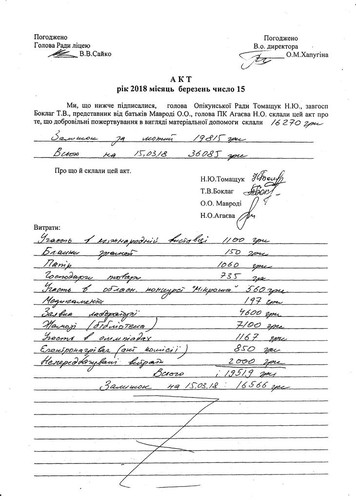 Погоджено Погоджено
Голова Ради ліцею В.о. директора
В.В.Сайко О.М.Хапугіна
А К Т
рік 2018 місяць березень число 15
Ми, що нижче підписалися, голова Опікунської Ради Томащук Н.Ю., завгосп
Боклаг Т.В., представник від батьків Мавроді О.О., голова ПК Агаєва Н.О. склали цей акт про
те, що добровільні пожертвування в вигляді матеріальної допомоги склали 16270 грн
Залишок за лютий 19815 грн
Всього на 15.03.18 36085 грн
Про що й склали цей акт.
Н.Ю.Томащук
Т.В.Боклаг
О.О. Мавроді
Н.О.Агаєва
Витрати:
Участь в міжнародній виставці 1100 грн
Бланки 150 грн
Папір 1060 грн
Господарчі товари 735 грн
Участь в обласн. конкурсі 560 грн
Медикаменти 197 грн
Заявка лабораторії 4600 грн
Жалюзі (бібліотека) 7100 грн
Участь в олімпіадах 1167 грн
Електронагрівач (акт комісії) 850 грн
Непередбачувані витрати 2000 грн
Всього : 19519 грн
Залишок на 15.03.18 : 16566 грн